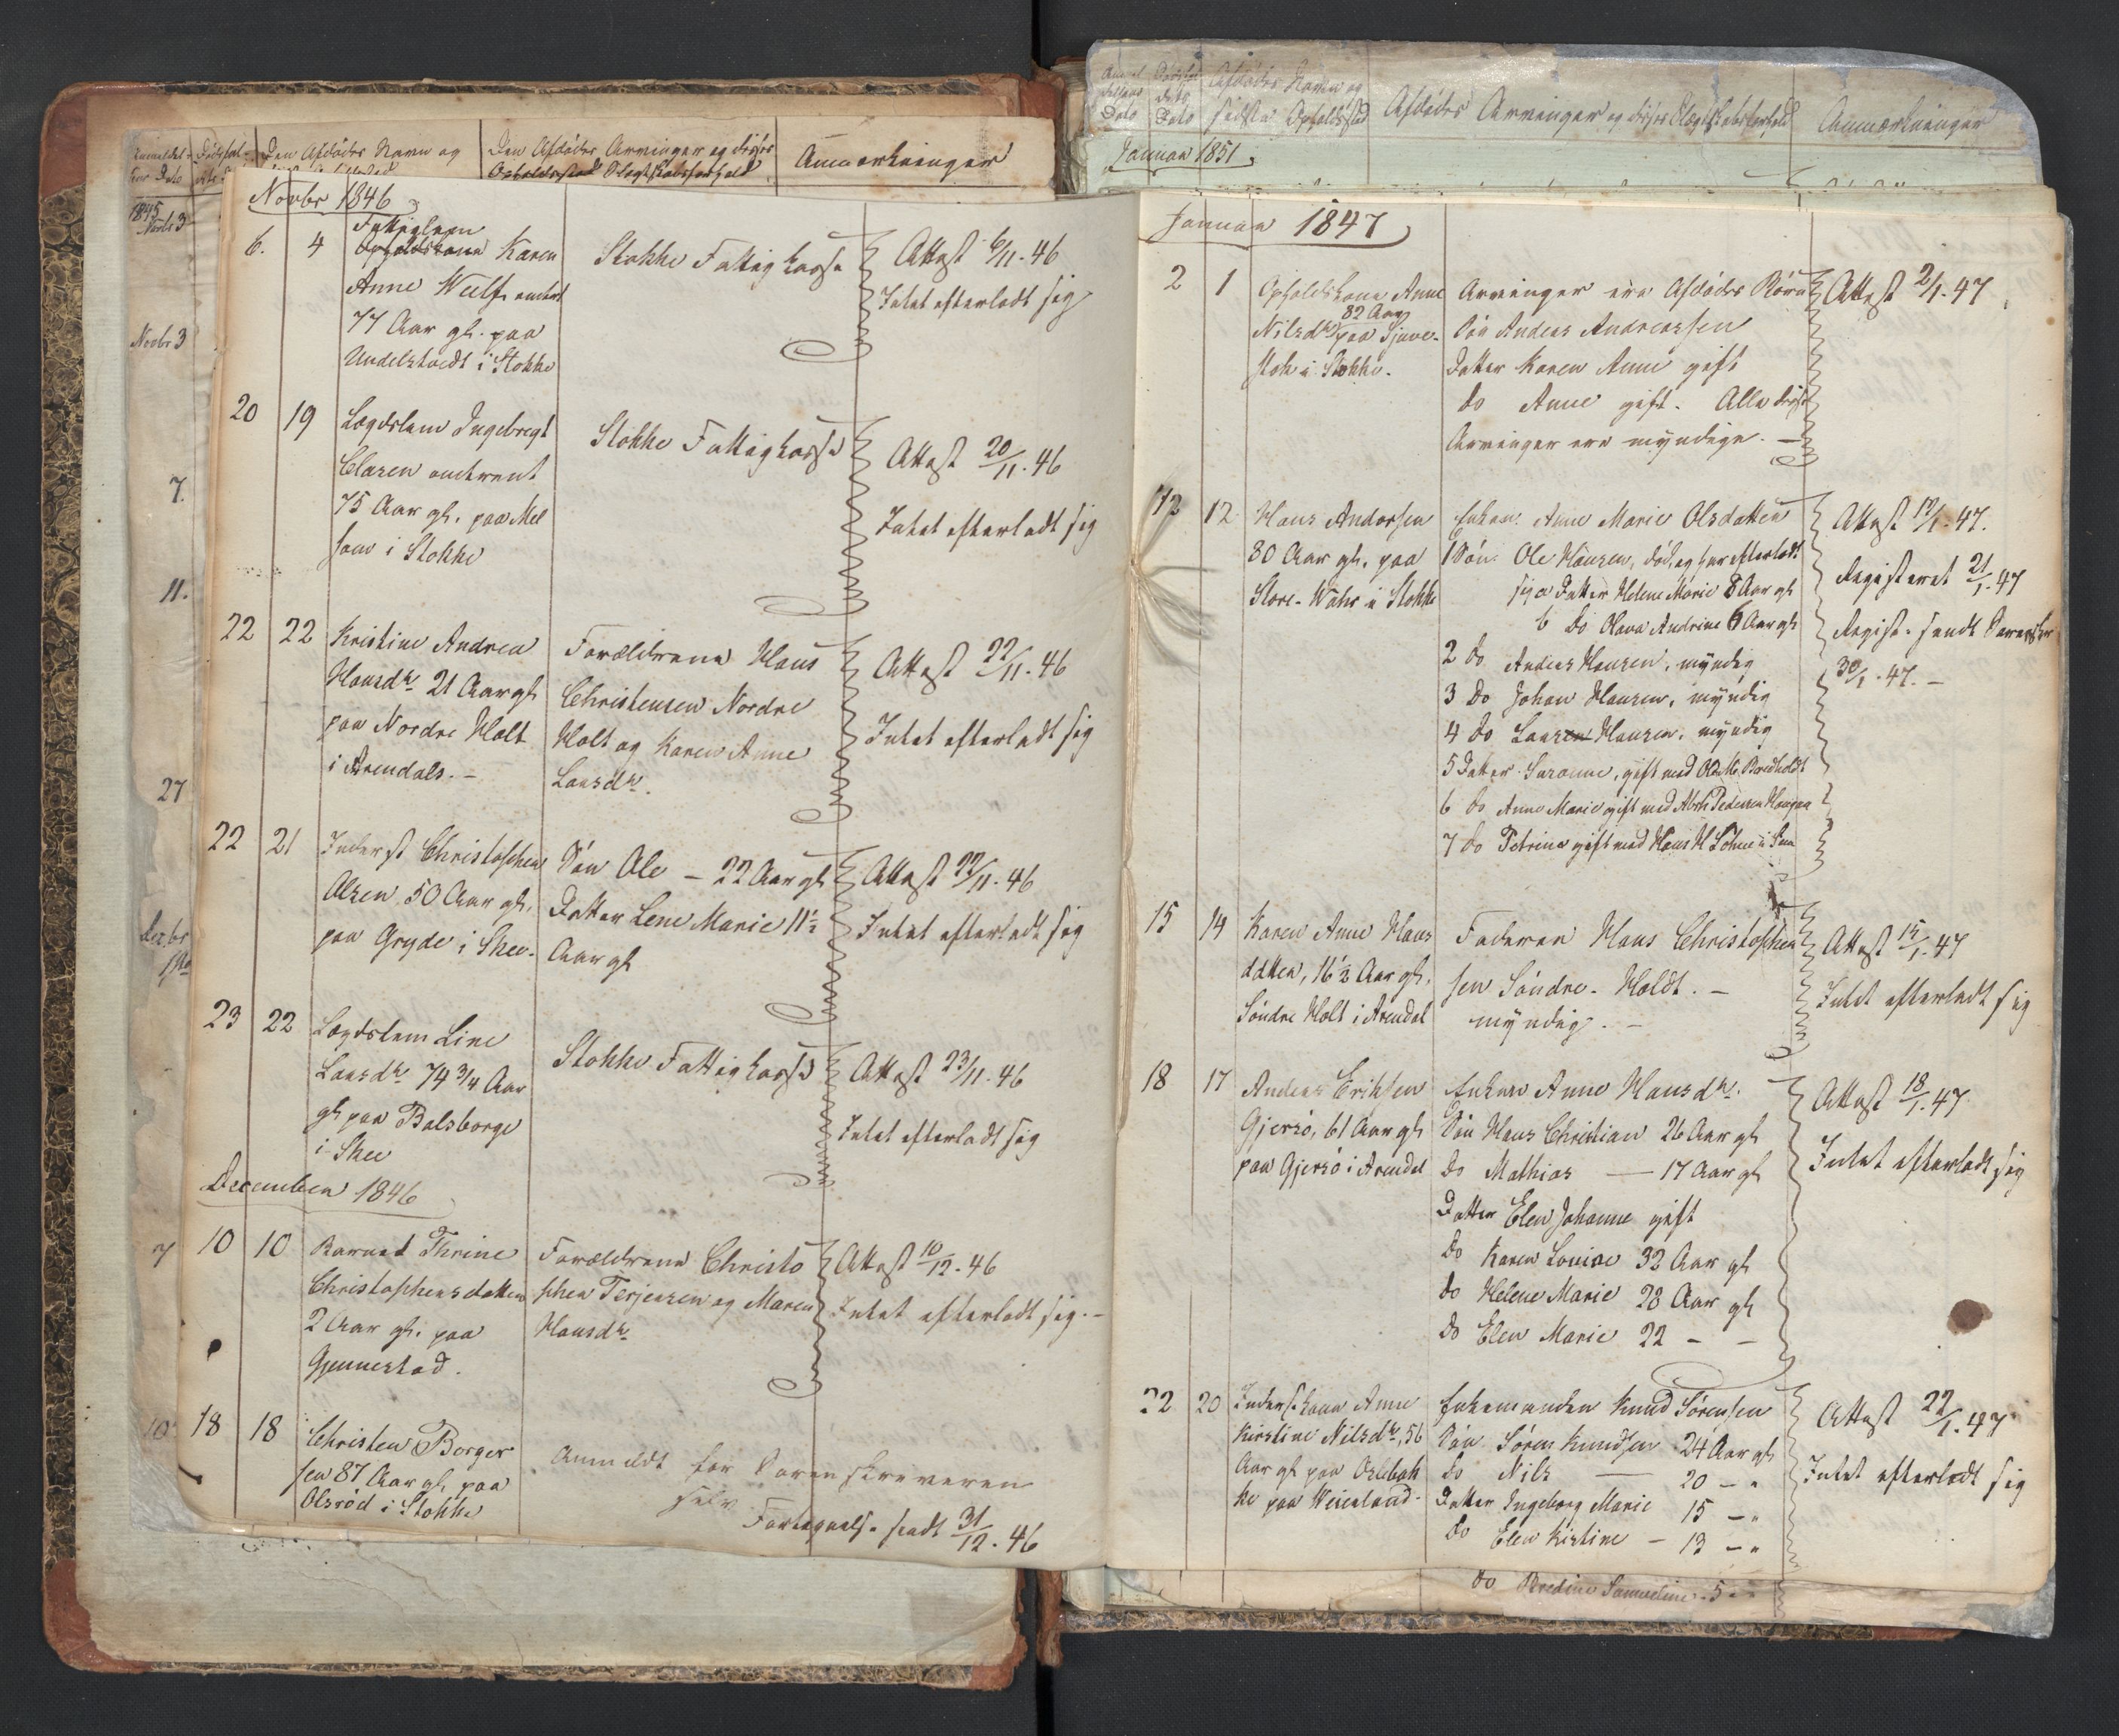 Den Afdödes Navn og
Den Afdödes Arvinger og disses
Opholdssted Slægtskabsforhold
Anmærkninger
1845
Novbr 3
Novbr 3
7.
11.
27
Decbr
7
10
Novbr 1846
6. 4
Fattiglem
Opholdskone Karen
Anne Wulf, omtrent
77 Aar gl. paa
Undelstvedt i Stokke
Stokke Fattigkasse
Attest 6/11. 46
Intet efterladt sig
20 19
Lægdslem Ingebregt
Clasen omtrent
75 Aar gl. paa Mel
som i Stokke
Stokke Fattigkasse
Attest 20/11. 46
Intet efterladt sig
22 22
Kristine Andrea
Hansdr. 21 Aar gl.
paa Nordre Holt
i Arendals. -
Forældrene Hans
Christensen Nordre
Holt og Karen Anne
Larsdr.
Attest 22/11. 46
Intet efterladt sig
22 21
Inderst Christopher
Olsen, 50 Aar gl.
paa Gryde i Skee.
Sön Ole - 22 Aar gl
Datter Lene Marie 11½
Aar gl
Attest 22/11. 46
Intet efterladt sig
23 22
Lægdslem Line
Larsdr. 74 3/4 Aar
gl paa Balsborge
i Skee
Stokke Fattigkasse
Attest 23/11. 46
Intet efterladt sig
December 1846
10 10
Barnet Thrine
Christophersdatter
2 Aar gl. paa
Gjennestad.
Forældrene Christo
pher Terjensen og Maren
Hansdr.
Attest 10/12. 46
Intet efterladt sig. -
18 18
Christen Borger
sen 87 Aar gl, paa
Olsröd i Stokke
Anmeldt for Sorenskriveren
selv
Fortegnelse sendt 31/12. 46
Dato
Dato
Afdödes Navn og
sidste Opholdssted
Afdödes Arvinger og disses Slægtskabsforhold
Anmærkninger
Januar 1851
Januar 1847
2 1
Opholdskone Anne
82 Aar
Nilsdr. paa Sjuve-
stok i Stokke.
Arvinger ere Afdödes Börn
Sön Anders Andreassen
Datter Karen Anne gift
do Anne gift. Alle disse
Arvinger ere myndige. -
Attest 2/1. 47
12 12
Hans Andersen
80 Aar gl. paa
Store-Wahr i Stokke
Enken Anne Marie Olsdatter
1 Sön Ole Hansen, död, og har efterladt
sig a Datter Helene Marie 8 Aar gl
b do Olava Andrine 6 Aar gl
2 do Anders Hansen, myndig
3 do Johan Hansen, myndig
4 do Lars Hansen, myndig
5 Datter Susanne, gift med Ole Ms Bredholdt
6 do Anne Marie gift med Abrh Pedersen Haugan
7 do Petrine gift med Hans H
Attest 12/1. 47.
Registeret 21/1. 47
Regist. sendt Sorenskr
30/1. 47. -
15 14
Karen Anne Hans
datter, 16½ Aar gl.
Söndre Holt i Arendal
Faderen Hans Christopher
sen Söndre-Holdt. -
myndig. -
Attest 15/1. 47
Intet efterladt sig
18 17
Anders Eriksen
Gjersö, 61 Aar gl
paa Gjersö i Arendal
Enken Anne Hansdr.
Sön Hans Christian 26 Aar gl
do Mathias - 17 Aar gl
Datter Elen Johanne gift
do Karen Louise 32 Aar gl
do Helene Marie 28 Aar gl
do Elen Marie 22 - -
Attest 18/1. 47
Intet efterladt sig
22 20
Inderstkone Anne
Kirstine Nilsdr, 56
Aar gl paa Oslebak
ke paa Weierland.
Enkemanden Knud Sörensen
Sön Sören Knudsen 24 Aar gl
do Nils - 20 - "
Datter Ingeborg Marie 15 - "
do Elen Kirstine - 13 - "
do Bredine Samueline - 5 - "
Attest 22/1. 47
Intet efterladt sig